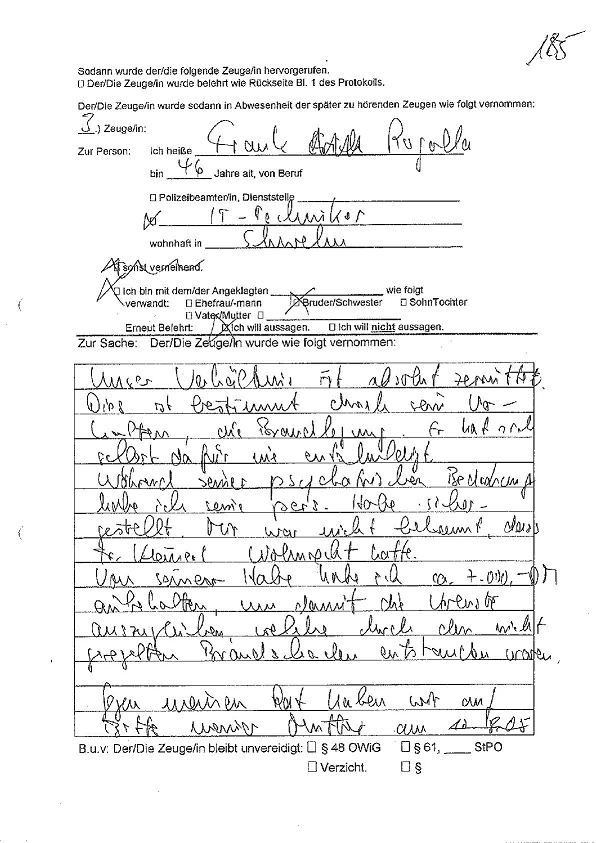 185
Sodann wurde der/die folgende Zeuge/in hervorgerufen.
☐ Der/Die Zeuge/in wurde belehrt wie Rückseite Bl. 1 des Protokolls.
Der/Die Zeuge/in wurde sodann in Abwesenheit der später zu hörenden Zeugen wie folgt vernommen:
3.) Zeuge/in:
Zur Person: ich heiße Frank Rogalla
bin 46 Jahre alt, von Beruf
☐ Polizeibeamter/in, Dienststelle
IT-Techniker
wohnhaft in Schwelm
sonst verneinend.
☐ Ich bin mit dem/der Angeklagten wie folgt
verwandt: ☐ Ehefrau/-mann ☒ Bruder/Schwester ☐ SohnTochter
☐ Vater/Mutter ☐
Erneut Belehrt: ☒ Ich will aussagen. ☐ Ich will nicht aussagen.
Zur Sache: Der/Die Zeuge/in wurde wie folgt vernommen:
Unser Verhältnis ist absolut zerrüttet.
Dies ist bestimmt durch sein Vor-
die Brandlegung Er hat sich
selbst dafür nie entschuldigt
Während seiner psychatrischen
habe ich seine pers. Habe sicher-
gestellt. Mir war nicht bekannt, dass
Fr. Wohnrecht hatte.
Von seiner Habe habe ich ca. 7.000,- DM
einbehalten, um damit die Verluste
auszugleichen welche durch den nicht
geregelten Brandschaden entstanden waren.
Gegen meinen Rat haben wir auf
Bitte meiner Mutter am
B.u.v: Der/Die Zeuge/in bleibt unvereidigt: ☐ § 48 OWiG ☐ § 61, ____ StPO
☐ Verzicht. ☐ §